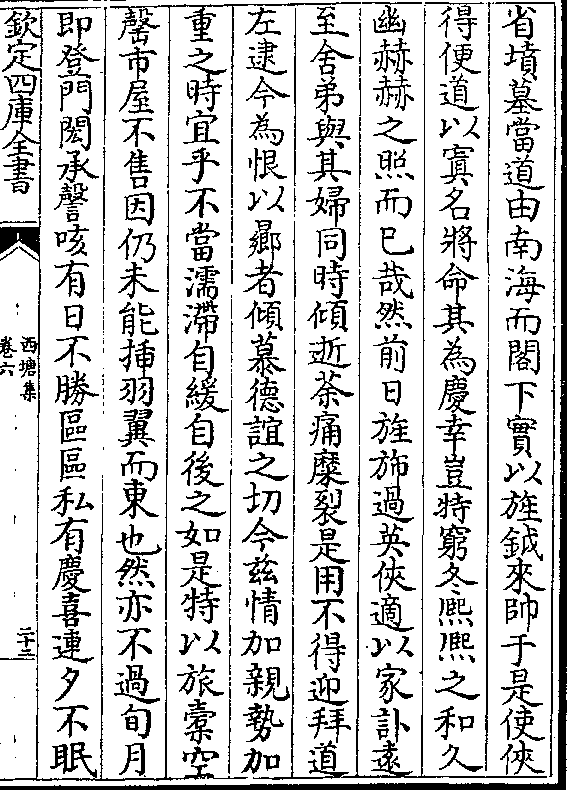 省墳墓當道由南海而閤下實以旌鉞來帥于是使俠
得便道以寘名將命其為慶幸豈特窮冬熈熈之和久
幽赫赫之照而已哉然前日旌斾過英俠適以家訃遠
至舍弟與其婦同時傾逝荼痛糜裂是用不得迎拜道
左逮今為恨以鄉者傾慕德誼之切今兹情加親勢加
重之時宜乎不當濡滯自緩自後之如是特以旅橐空
罄市屋不售因仍未能揷羽翼而東也然亦不過旬月
即登門閎承謦咳有日不勝區區私有慶喜連夕不眠
欽定四庫全書
西塘集
卷六
二十三